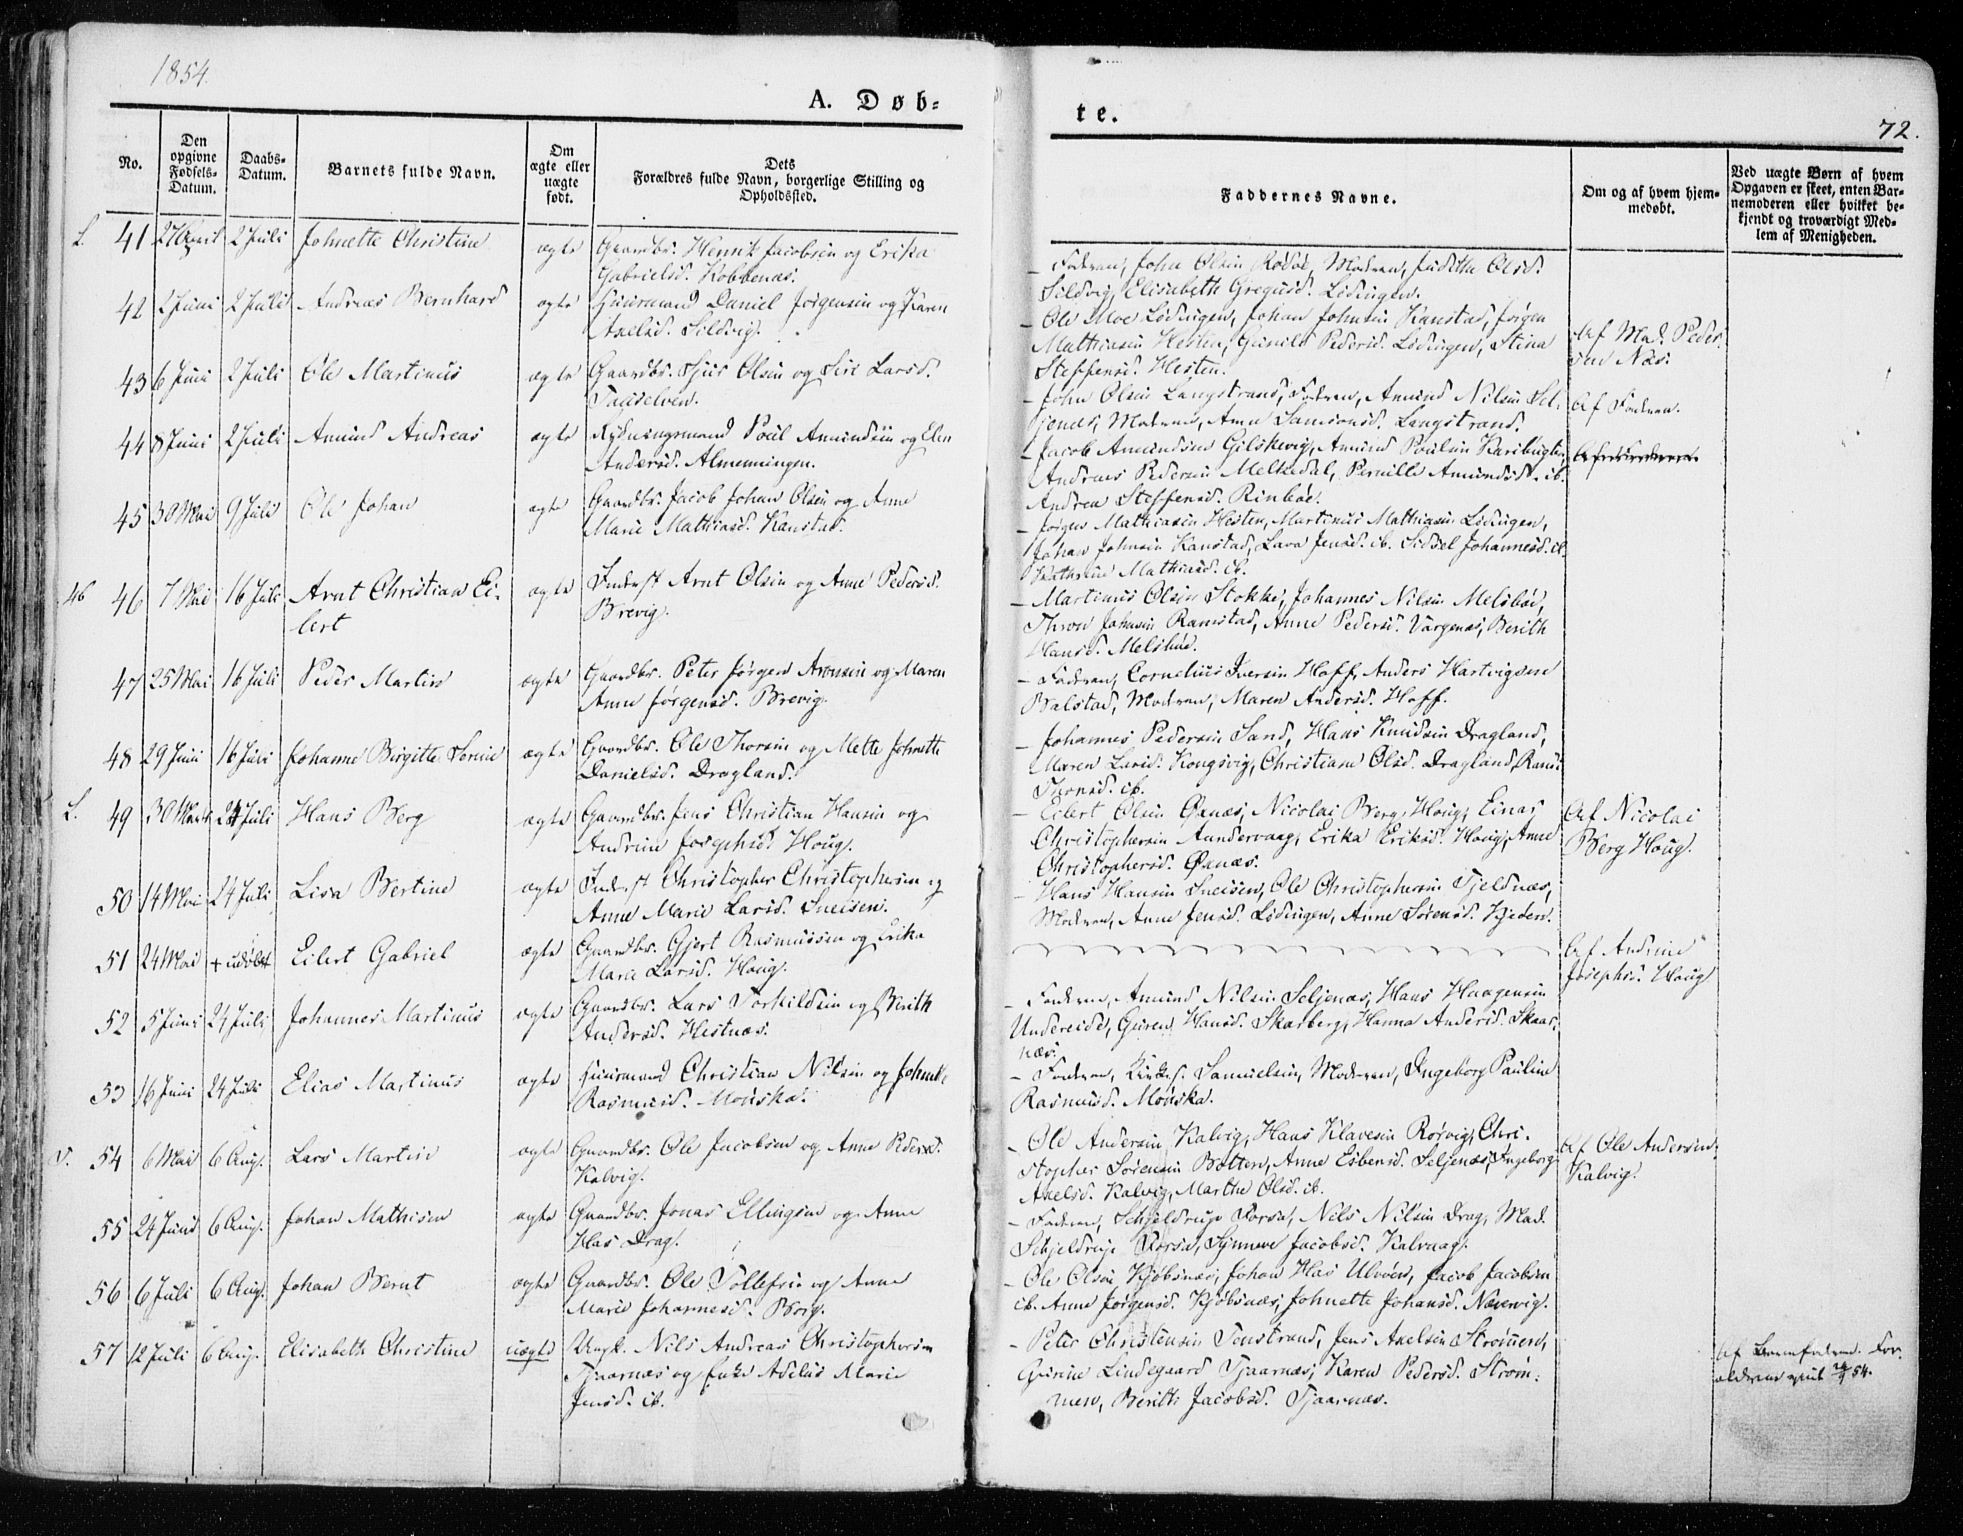 1854.
A. Døb-
te.
72.
No.
Den opgivne Fødsels-Datum.
Daabs-Datum.
Barnets fulde Navn.
Om ægte eller uægte født.
Dets Forældres fulde Navn, borgerlige Stilling og Opholdssted.
Faddernes Navne.
Om og af hvem hjemmedøbt.
Ved uægte Børn af hvem Opgaven er skeet, enten Barnemoderen eller hvilket bekjendt og troværdigt Medlem af Menigheden.
L. 41 27 April 2 Juli Johnette Christine ægte Gaardbr. Henrik Jacobsen og Erika
Gabrielsd. Kobbenæs.
– Faderen, John Olsen Rødøe, Moderen, Judithe Olsd.
Sildvig, Elisabeth Gregusd. Lødingen.
42 2 Juni 2 Juli Andreas Bernhard ægte Huusmand Daniel Jørgensen og Karen
Axelsd. Sildvig.
– Ole Moe Lødingen, Johan Johnsen Kanstad, Jørgen
Mathiasen Hesten, Gunild Pedersd. Lødingen, Stina
Steffensd. Hesten.
Af Mad. Peder-
sen Næs.
43 6 Juni 2 Juli Ole Martinus ægte Gaardbr. Sjur Olsen og Siri Larsd.
– John Olsen Langstrand, Faderen, Amund Nilsen Sel-
jenæs, Moderen, Ane Samsonsd. Langstrand.
Af Faderen.
44 8 Juni 2 Juli Amund Andreas ægte Rydningsmand Poul Amundsen og Elen
Andersd. Almenningen.
– Jacob Amundsen Gilskevig, Amund Poulsen
Andreas Pedersen Melkedal, Pernille Amundsd. ib.
Andrea Steffensd. Rinbøe.
45 30 Mai 9 Juli Ole Johan ægte Gaardbr. Jacob Johan Olsen og Anne
Marie Mathiasd. Kanstad.
– Jørgen Mathiasen Hesten, Martinus Mathiasen Lødingen,
Johan Johnsen Kanstad, Lava Jensd. ib. Sidsel Johannesd. ib.
Kathrine Mathiasd. ib.
46 46 7 Mai 16 Juli Arnt Christian Ei-
lert
ægte Inderst Arnt Olsen og Anne Pedersd.
Brevig.
– Martinus Olsen Stokke, Johannes Nilsen Melsbøe,
Thron Johnsen Ramstad, Anne Pedersd. Vargenæs, Berith
Hansd.
47 25 Mai 16 Juli Peder Martin ægte Gaardbr. Peter Jørgen Aronsen og Maren
Anne Jørgensd. Brevig.
– Faderen, Cornelius Iversen Hoff, Anders Hartvigsen
Balstad, Moderen, Maren Andersd. Hoff.
48 29 Juni 16 Juli Johanne Birgitte Sørine ægte Gaardbr. Ole Thorsen og Mette Johnette
Danielsd. Dragland.
– Johannes Pedersen Sand, Hans Knudsen Dragland,
Maren Larsd. Kongsvig, Christiane Olsd. Dragland,
ib.
L. 49 24 Juli Hans Berg ægte Gaardbr. Jens Christian Hansen og
Andrine Josephsd. Houg.
– Eilert Olsen Øxnæs, Nicolai Berg, Houg, Einar
Christophersen Aundervaag, Erika Eriksd. Houg, Anne
Christophersd. Øxnæs.
Af Nicolai
Berg Houg.
50 14 Mai 24 Juli Lisa Bertine ægte Inderst Christopher Christophersen og
Anne Marie Larsd. Sneisen.
– Hans Hansen Sneisen, Ole Christophersen Tjeldnæs,
Moderen, Anne Jensd. Lødingen, Anne Sørensd. Kjeden.
51 24 Mai + udøbt Eilert Gabriel ægte Gaardbr. Gjert Rasmussen og Erika
Marie Larsd. Houg.
Af Andrine
Josephsd. Houg
52 5 Juni 24 Juli Johannes Martinus ægte Gaardbr. Lars Torkildsen og Berith
Andersd. Hestnæs.
– Faderen, Amund Nilsen Seljenæs, Hans Haagensen
Undereide, Guren Hansd. Skarberg, Hanna Andersd. Skaar-
næs.
53 16 Juni 24 Juli Elias Martinus ægte Huusmand Christian Nilsen og Johnette
Rasmusd. Monska.
– Faderen, Samuelsen, Moderen, Ingeborg Pauline
Rasmusd. Monska.
54 6 Mai 6 Aug. Lars Martin ægte Gaardbr. Ole Jacobsen og Anne Pedersd.
Kalvig.
– Ole Andersen Kalvig, Hans Klavesen Rørvig, Chri-
stopher Sørensen Botten, Anne Esbensd. Seljenæs, Ingeborg
Axelsd. Kalvig, Marthe Olsd. ib.
Af Ole Andersen
Kalvig.
55 24 Juni 6 Aug. Johan Mathisen ægte Gaardbr. Jonas Ellingsen og Anne
Has Drag.
– Faderen, Schjeldrup Forsa, Nils Nilsen Drag, Mad.
Schjeldrup Forsa, Synneve Jacobsd. Kalvaag.
56 6 Juli 6 Aug. Johan Bernt ægte Gaardbr. Ole Tollefsen og Anne
Marie Johannesd. Borg.
– Ole Olsen Kjøbsnæs, Johan Has Ulvøen, Jacob Jacobsen
ib. Anne Jørgensd. Kjøbsnæs, Johnette Johansd. Nævervig.
57 12 Juli 6 Aug. Elisabeth Christine uægte Ungk. Nils Andreas Christophersen
Tjaarnæs og Enke Adelus Marie
Jensd. ib.
– Peter Christensen Tenstrand, Jens Axelsen Strømmen,
Gurine Lindegaard Tjaarnæs, Karen Pedersd. Strøm-
men, Berith Jacobsd. Tjaarnæs.
Af Barnefaderen. For-
ældrene